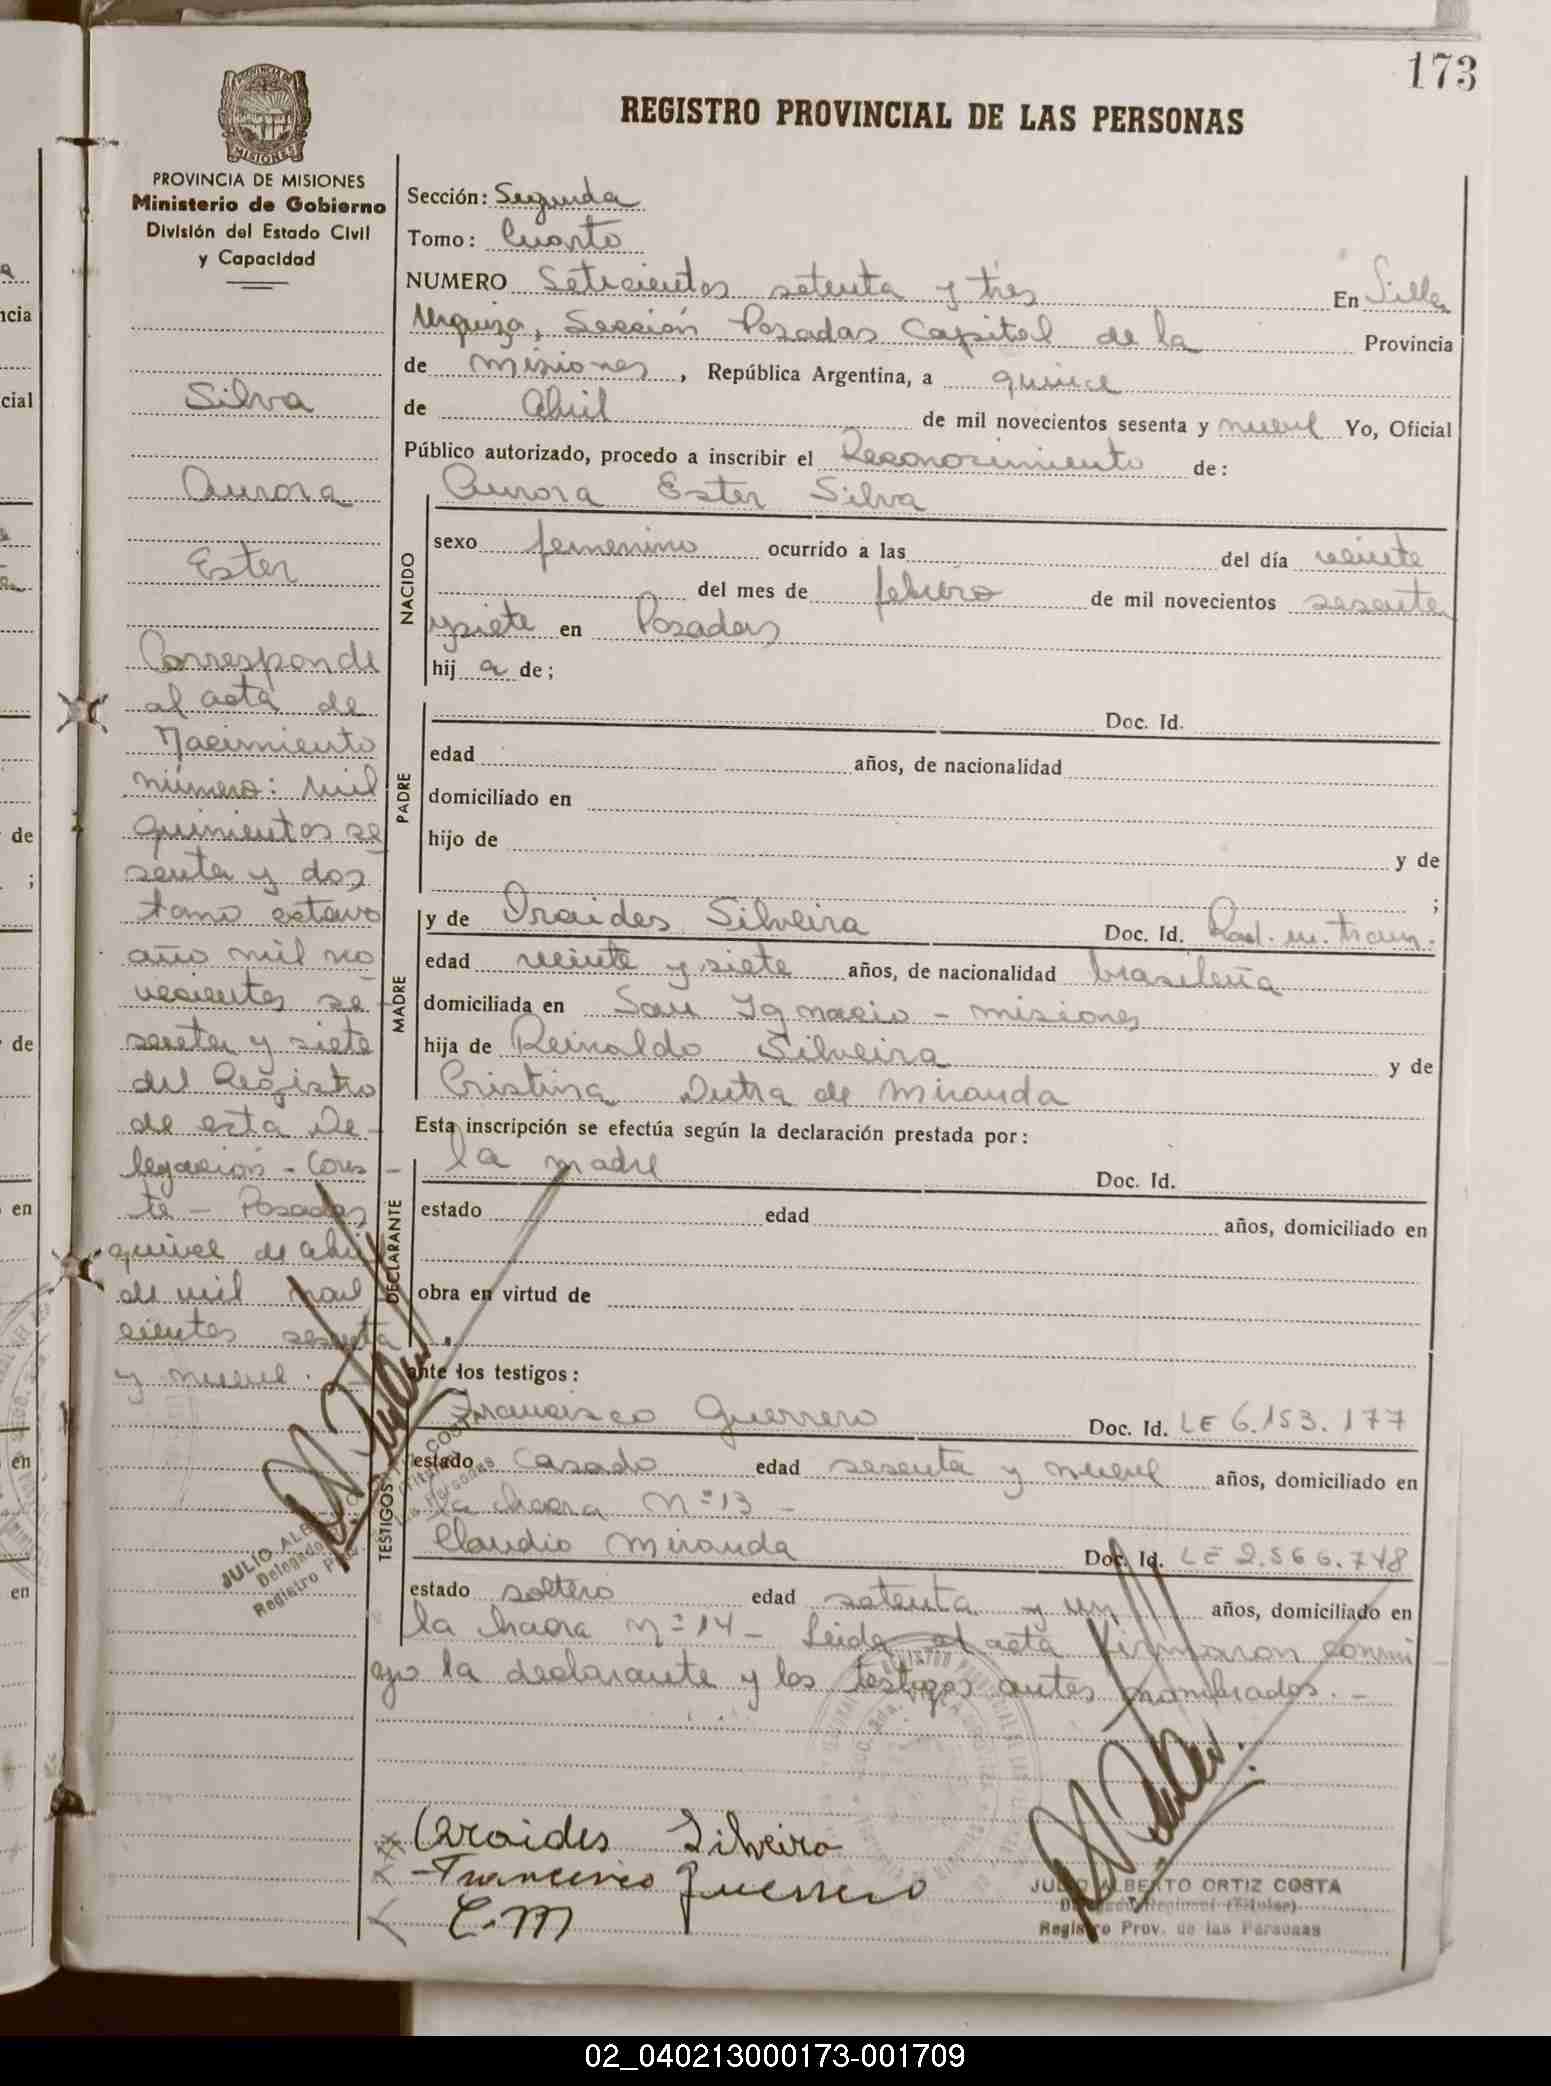 173
REGISTRO PROVINCIAL DE LAS PERSONAS
PROVINCIA DE MISIONES
Ministerio de Gobierno
División del Estado Civil
y Capacidad
Silva
Aurora
Ester
Corresponde
al acta de
Nacimiento
número: mil
quinientos se
senta y dos
tomo octavo
año mil no
vecientos se
senta y siete
del Registro
de esta De-
legación - Cons-
te - Posadas
quince de abril
de mil nove
cientos sesenta
y nueve.
Sección: Segunda
Tomo: Cuarto
NUMERO Seteientos setenta y tres En Villa
Urquiza, Sección Posadas Capital de la Provincia
de Misiones, República Argentina, a quince
de Abril de mil novecientos sesenta y nueve Yo, Oficial
Público autorizado, procedo a inscribir el Reconocimiento de:
NACIDO
Aurora Ester Silva
sexo femenino ocurrido a las del día veinte
del mes de febrero de mil novecientos sesenta
y siete en Posadas
hij a de;
PADRE
Doc. Id.
edad años, de nacionalidad
domiciliado en
hijo de y de
;
MADRE
y de Iraides Silveira Doc. Id. Rad. en tram.
edad veinte y siete años, de nacionalidad brasileña
domiciliada en San Ignacio - Misiones
hija de Reinaldo Silveira y de
Cristina Dutra de Miranda
Esta inscripción se efectúa según la declaración prestada por:
DECLARANTE
la madre Doc. Id.
estado edad años, domiciliado en
obra en virtud de
ante los testigos:
TESTIGOS
Francisco Guerrero Doc. Id. LE 6.153.177
estado Casado edad sesenta y nueve años, domiciliado en
la chacra nº 13 -
Claudio Miranda Doc. Id. LE 2.566.748
estado soltero edad setenta y un años, domiciliado en
la chacra nº 14 - Leida el acta firmaron conmi
go la declarante y los testigos antes nombrados. -
Silveira
Francisco Guerrero
C.M
JULIO ALBERTO ORTIZ COSTA
Delegado Regional (Titular)
Registro Prov. de las Personas
02_040213000173-001709